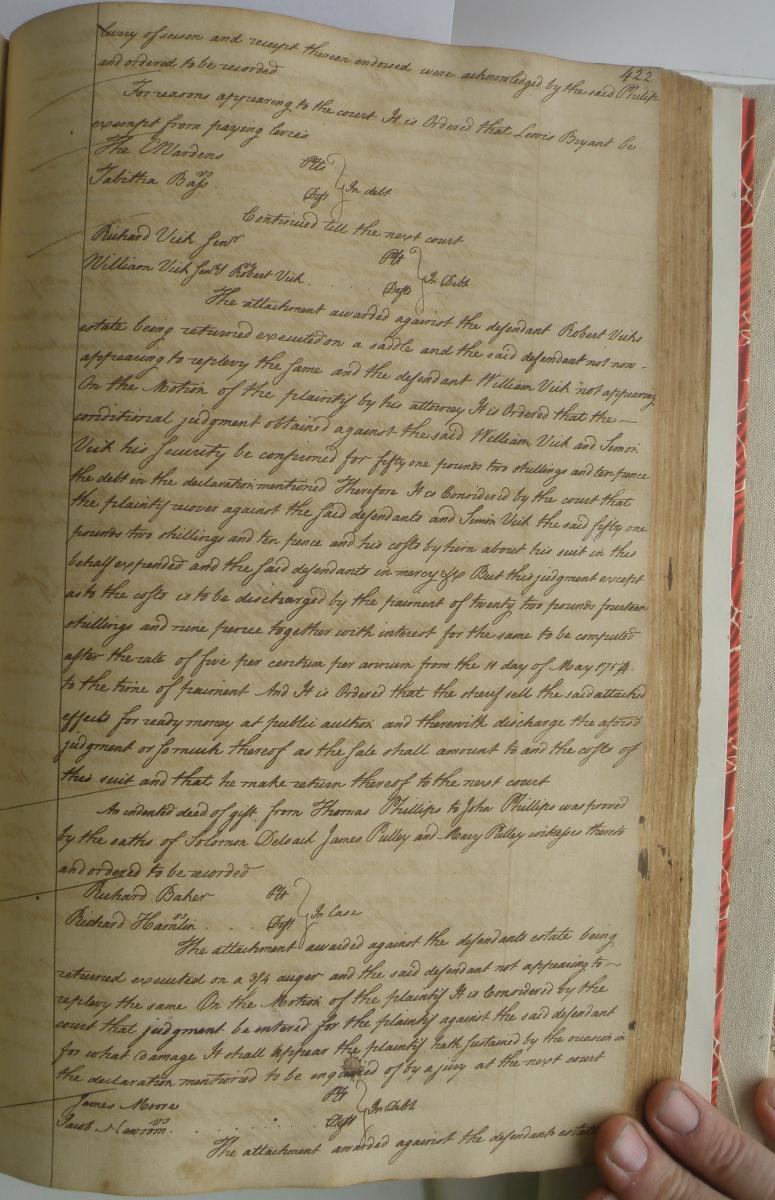 422
livery of seisen and receipt thereon endorsed were acknowledged by the said Philip
and ordered to be recorded
For reasons appearing to the court It is Ordered that Lewis Bryant be
exempt from paying levies
The CWardens Plts
vs In debt
Tabitha Bass. Deft
Continued till the next court
Richard Vick Senr Plt
vs In Debt
William Vick Senr & Robert Vick Defts
The attachment awarded against the defendant Robert Vicks
estate being returned executed on a saddle and the said defendant not now -
appearing to replevy the same and the defendant William Vick not appearing
On the Motion of the plaintif by his attorney It is Ordered that the —
conditional judgment obtained against the said William Vick and Simon
Vick his security be confirmed for fifty one pounds two shillings and ten pence
the debt in the declaration mentioned Therefore It is Considered by the court that
the plaintif recover against the said defendants and Simon Vick the said fifty one
pounds two shillings and ten pence and his costs by him about his suit in this
behalf expended and the said defendants in mercy &c But this judgment except
as to the costs is to be discharged by the paiment of twenty two pounds fourteen
shillings and nine pence together with interest for the same to be computed
after the rate of five per centum per annum from the 11 day of May 1754
to the time of paiment And It is Ordered that the sherif sell the said attached
effects for ready money at public auction and therewith discharge the aforsd
judgment or so much thereof as the sale shall amount to and the costs of
this suit and that he make return thereof to the next court
An indented deed of gift from Thomas Phillips to John Phillips was proved
by the oaths of Solomon Deloach James Pulley and Mary Pulley witnesses thereto
and ordered to be recorded
Richard Baker Plt
vs In Case
Richard Hamlin Deft
The attachment awarded against the defendants estate being
returned executed on a 3/4 auger and the said defendant not appearing to —
replevy the same On the Motion of the plaintif It is Considered by the
court that judgment be entered for the plaintif against the said defendant
for what damage It shall appear the plaintif hath sustained by the occasion in
the declaration mentioned to be enquired of by a jury at the next court
James Moore Plt
vs In Debt
Jacob Newsom Deft
The attachment awarded against the defendants estate